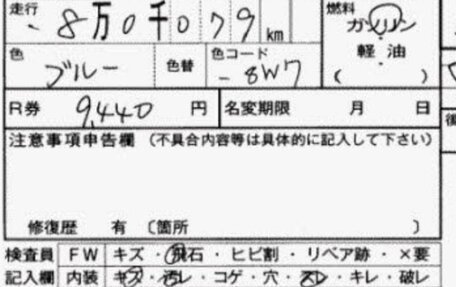 走行 8万0千079 km 燃料 ガソリン
軽・油
( )
色 ブルー 色替 色コード 8W7
R券 9,440 円 名変期限 月 日
注意事項申告欄 (不具合内容等は具体的に記入して下さい)
修復歴 有 〔箇所 〕
検査員 FW キズ・飛石・ヒビ割・リペア跡・×要
記入欄 内装 キズ・汚レ・コゲ・穴・スレ・キレ・破レ